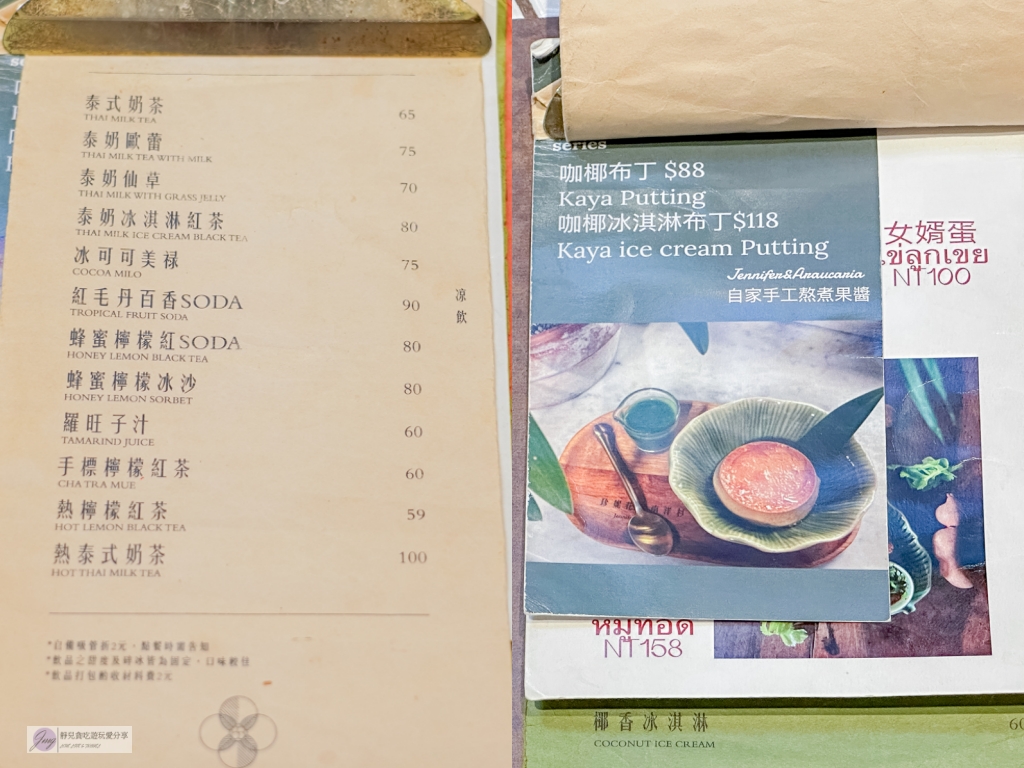 泰式奶茶
THAI MILK TEA
65
泰奶歐蕾
THAI MILK TEA WITH MILK
75
泰奶仙草
THAI MILK WITH GRASS JELLY
70
泰奶冰淇淋紅茶
THAI MILK ICE CREAM BLACK TEA
80
冰可可美祿
COCOA MILO
75
紅毛丹百香SODA
TROPICAL FRUIT SODA
90
蜂蜜檸檬紅SODA
HONEY LEMON BLACK TEA
80
蜂蜜檸檬冰沙
HONEY LEMON SORBET
80
羅旺子汁
TAMARIND JUICE
60
手標檸檬紅茶
CHA TRA MUE
60
熱檸檬紅茶
HOT LEMON BLACK TEA
59
熱泰式奶茶
HOT THAI MILK TEA
100
涼飲
*飲品打包酌收材料費2元
靜兒貪吃遊玩愛分享
series
咖椰布丁 $88
Kaya Putting
咖椰冰淇淋布丁$118
Kaya ice cream Putting
Jennifer&Araucaria
自家手工熬煮果醬
女婿蛋
ไข่ลูกเขย
NT100
หมูทอด
NT158
椰香冰淇淋
COCONUT ICE CREAM
60